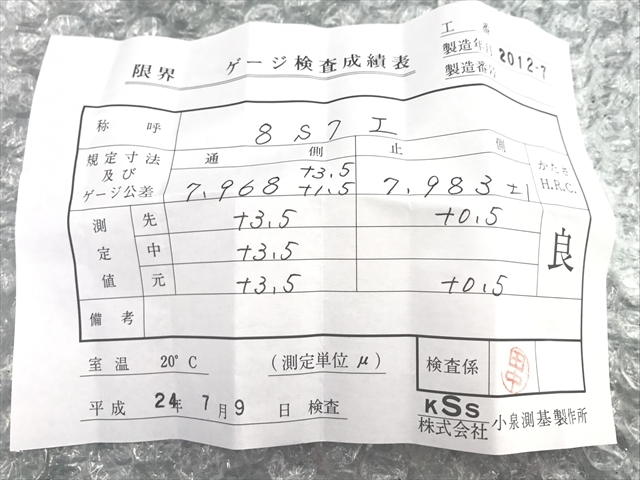 工番
限界 ゲージ検査成績表
製造年月 2012-7
製造番号
称呼 8 S7 工
規定寸法及びゲージ公差 通側 止側 かたさ H.R.C.
7,968 +3.5 +1.5 7,983 ±1
測定値 先 +3,5 +0,5 良
中 +3,5
元 +3,5 +0,5
備考
室温 20°C (測定単位μ) 検査係
平成 24年 7月 9日 検査
KSS
株式会社 小泉測基製作所